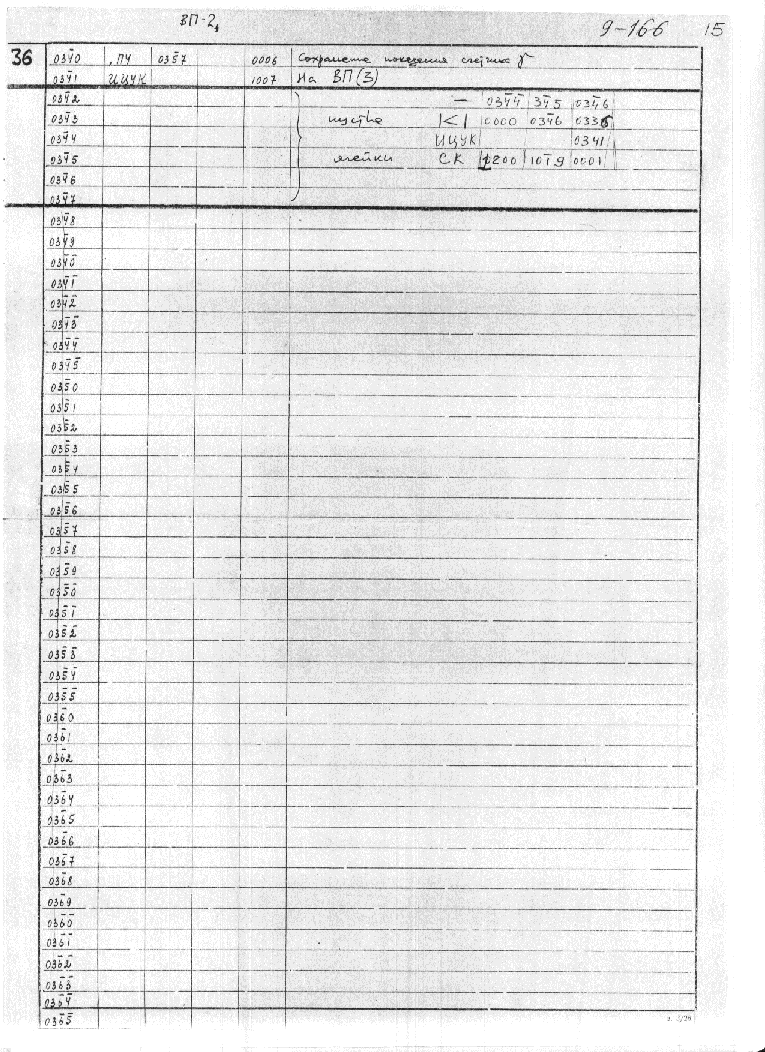 ВП-2₁ 9-166 15
36 034̄0 ,ПЧ 035̄7 0006 Сохранение показения счетчика γ
034̄1 ИЦУК 1007 На ВП(3)
034̄2 — 034̄4̄ 34̄5 034̄6
034̄3 пустые |<| 0000 034̄6 033̄6
034̄4 ИЦУК 0341
034̄5 ячейки СК 1200 101̄9 0001
034̄6
034̄7
034̄8
034̄9
034̄0̄
034̄1̄
034̄2̄
034̄3̄
034̄4̄
034̄5̄
035̄0
035̄1
035̄2
035̄3
035̄4
035̄5
035̄6
035̄7
035̄8
035̄9
035̄0̄
035̄1̄
035̄2̄
035̄3̄
035̄4̄
035̄5̄
036̄0
036̄1
036̄2
036̄3
036̄4
036̄5
036̄6
036̄7
036̄8
036̄9
036̄0̄
036̄1̄
036̄2̄
036̄3̄
036̄4̄
036̄5̄